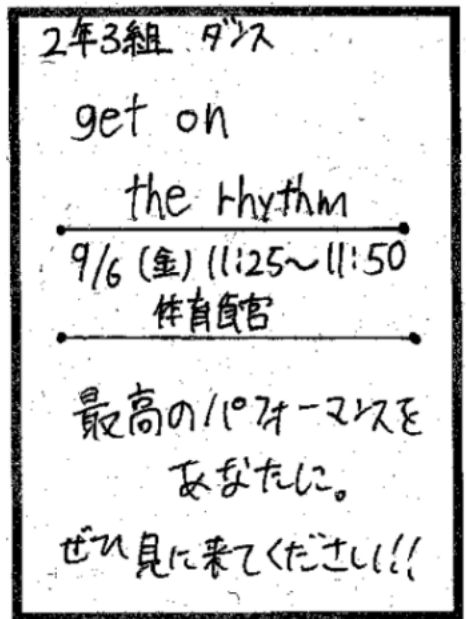 2年3組 ダンス
get on
the rhythm
9/6 (金) 11:25～11:50
体育館
最高のパフォーマンスを
あなたに。
ぜひ見に来てください!!